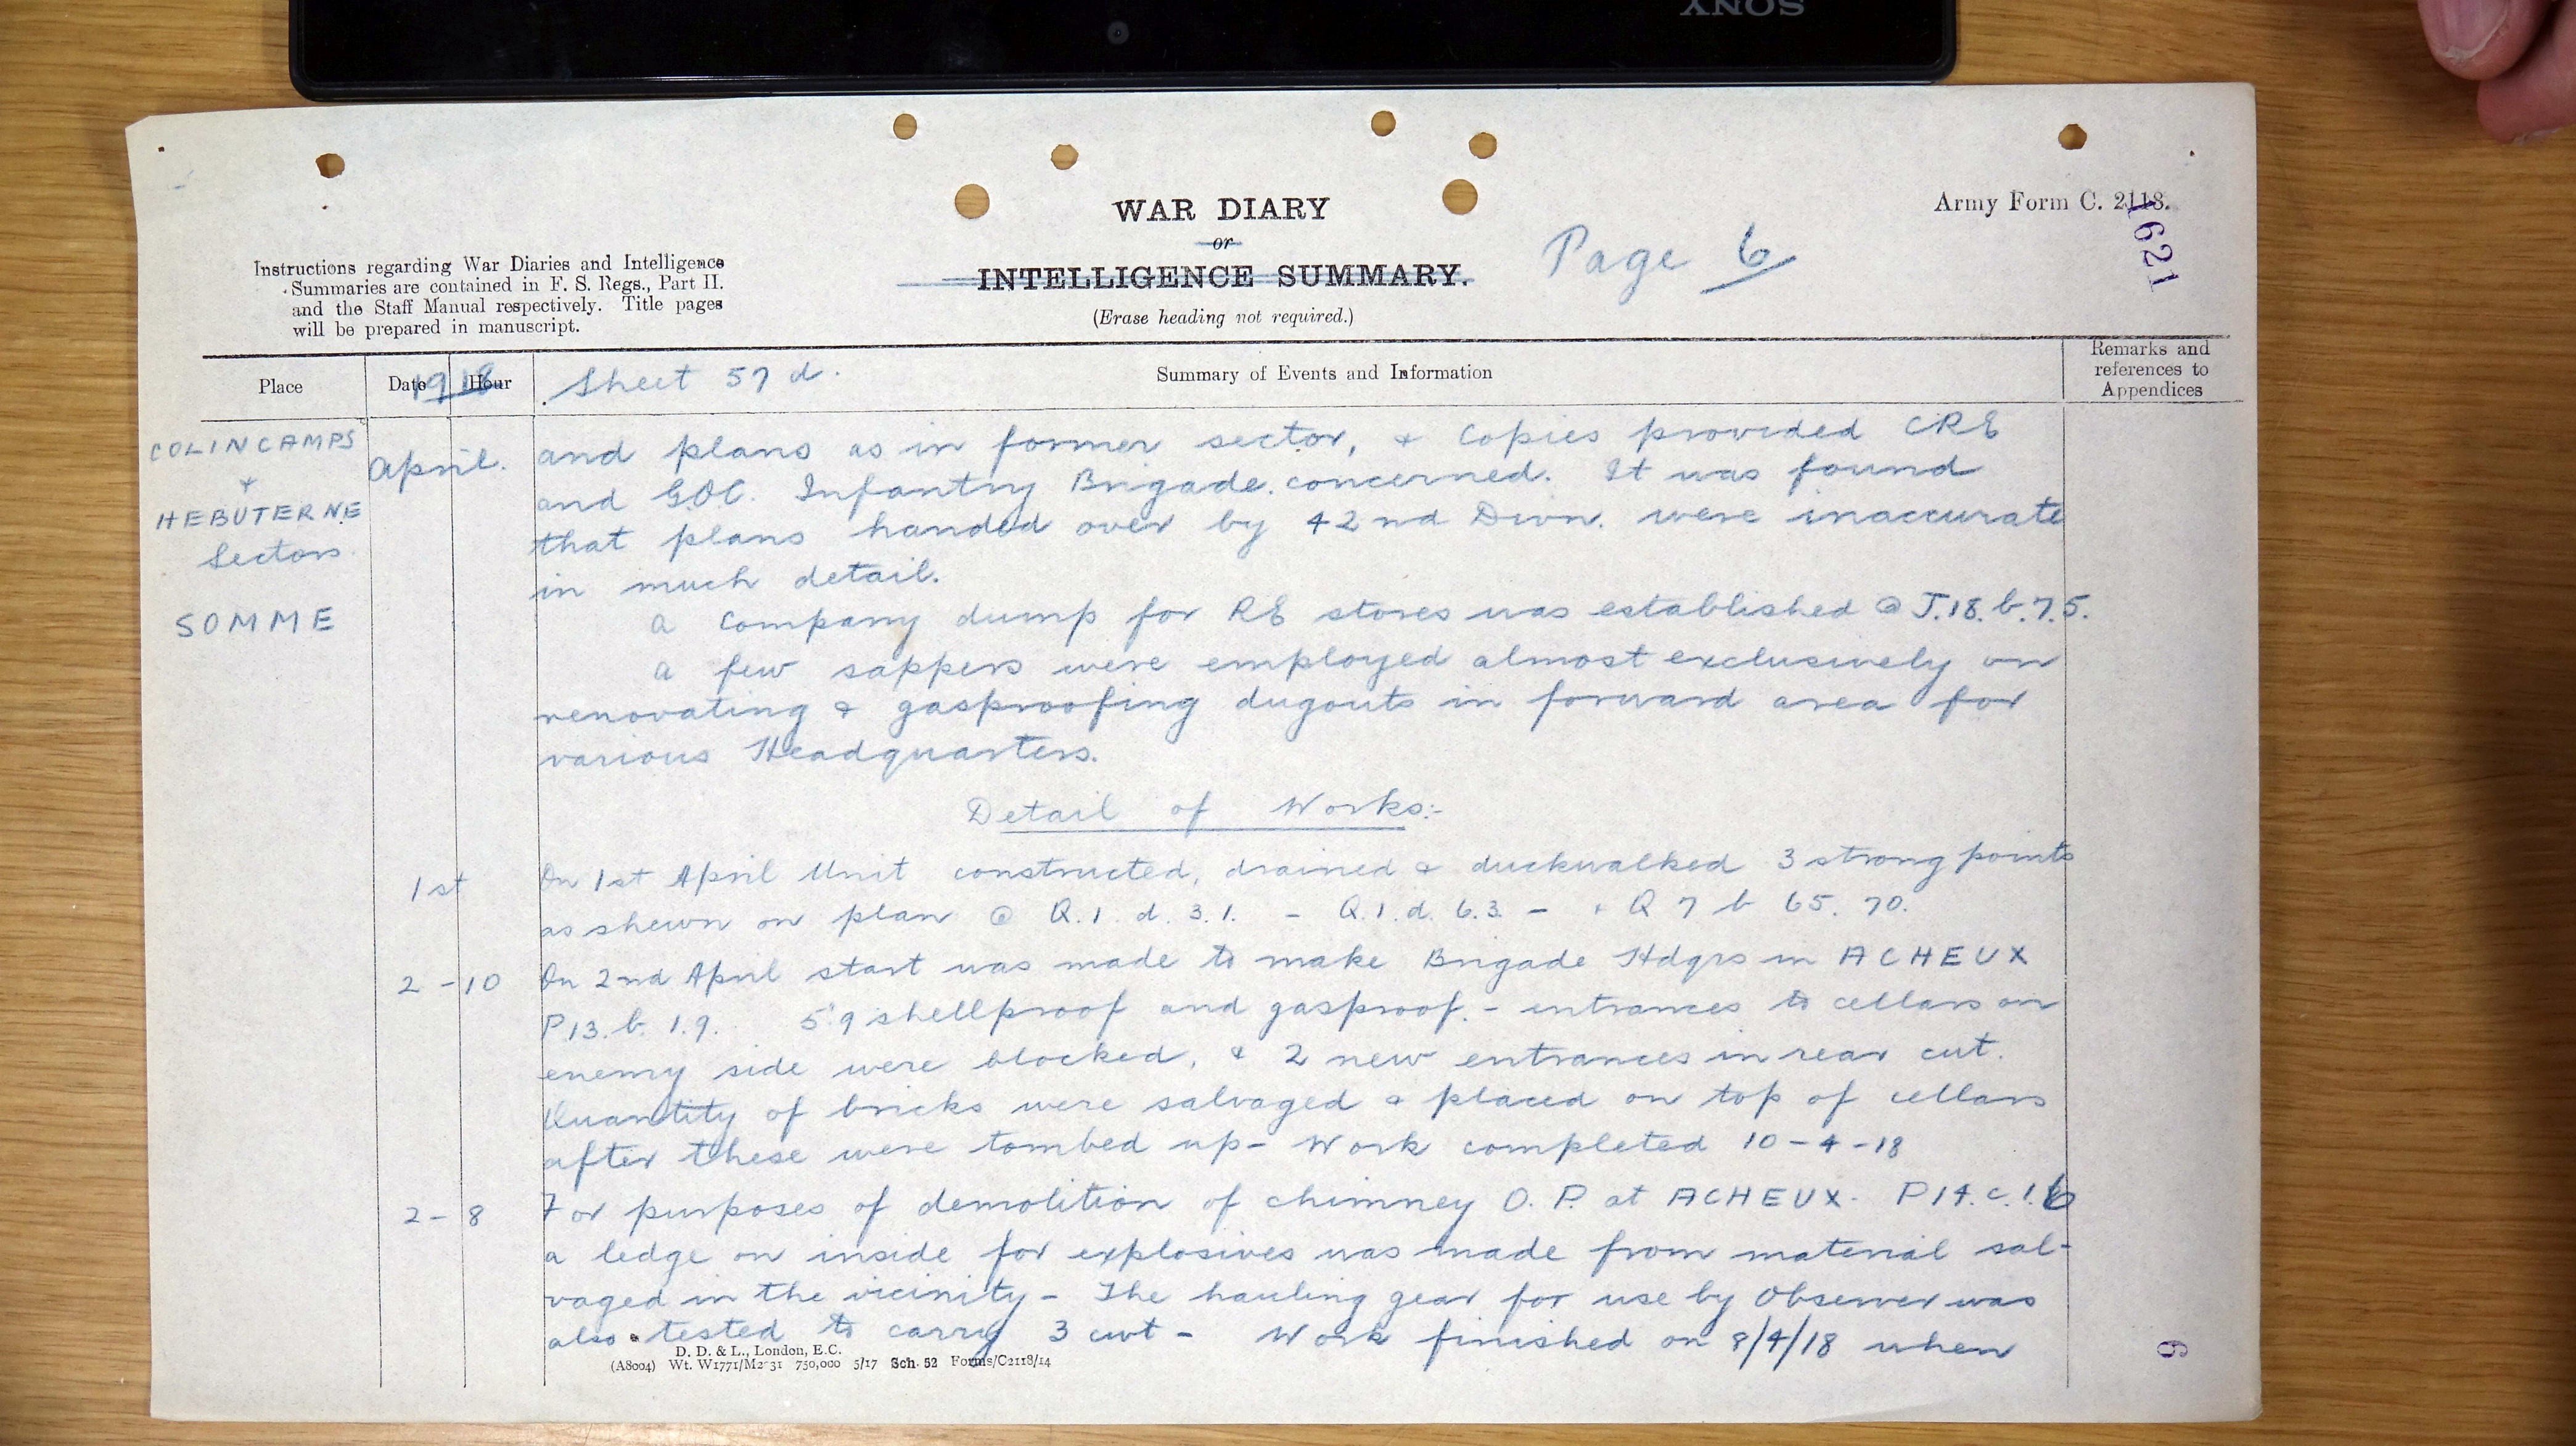 SONY
WAR DIARY
or
INTELLIGENCE SUMMARY.
(Erase heading not required.)
Page 6
Army Form C. 2118.
1621
Instructions regarding War Diaries and Intelligence
Summaries are contained in F. S. Regs., Part II.
and the Staff Manual respectively. Title pages
will be prepared in manuscript.
Place
Date
Hour
1918
Sheet 57 d.
Summary of Events and Information
Remarks and
references to
Appendices
COLINCAMPS
+
HEBUTERNE
Sectors
SOMME
April.
and plans as in former sector, & Copies provided CRE
and G.O.C. Infantry Brigade concerned. It was found
that plans handed over by 42nd Divn. were inaccurate
in much detail.
A Company dump for RE stores was established @ J.18.b.7.5.
A few sappers were employed almost exclusively on
renovating & gasproofing dugouts in forward area for
various Headquarters.
Detail of Works:-
1st
On 1st April Unit constructed, drained & duckwalked 3 strong points
as shewn on plan @ Q.1.d.3.1. - Q.1.d.6.3 - & Q 7 b 65.70.
2-10
On 2nd April start was made to make Brigade Hdqrs in ACHEUX
P13.b.1.9. 5.9 shellproof and gasproof. - entrances to cellars on
enemy side were blocked, & 2 new entrances in rear cut.
Quantity of bricks were salvaged & placed on top of cellars
after these were tombed up - Work completed 10-4-18
2-8
For purposes of demolition of chimney O.P. at ACHEUX - P14.c.1.6
a ledge on inside for explosives was made from material sal-
vaged in the vicinity - The hauling gear for use by Observer was
also tested to carry 3 cwt - Work finished on 8/4/18 when
D. D. & L., London, E.C.
(A8004) Wt. W1771/M2 31 750,000 5/17 Sch. 52 Forms/C2118/14
6